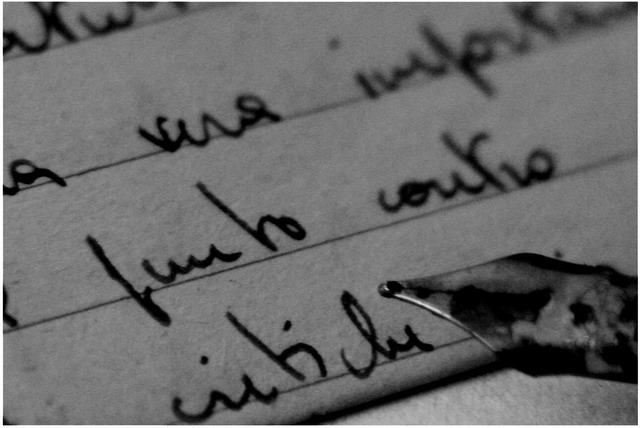 vera importan
punto contro
critiche